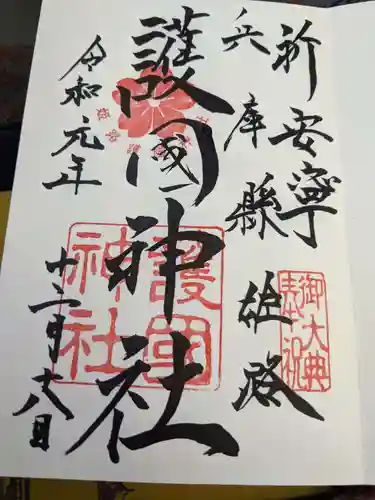 祈安寧
兵庫縣
姫路
護國神社
令和元年
十二月十八日
護國
神社
御大典
奉祝